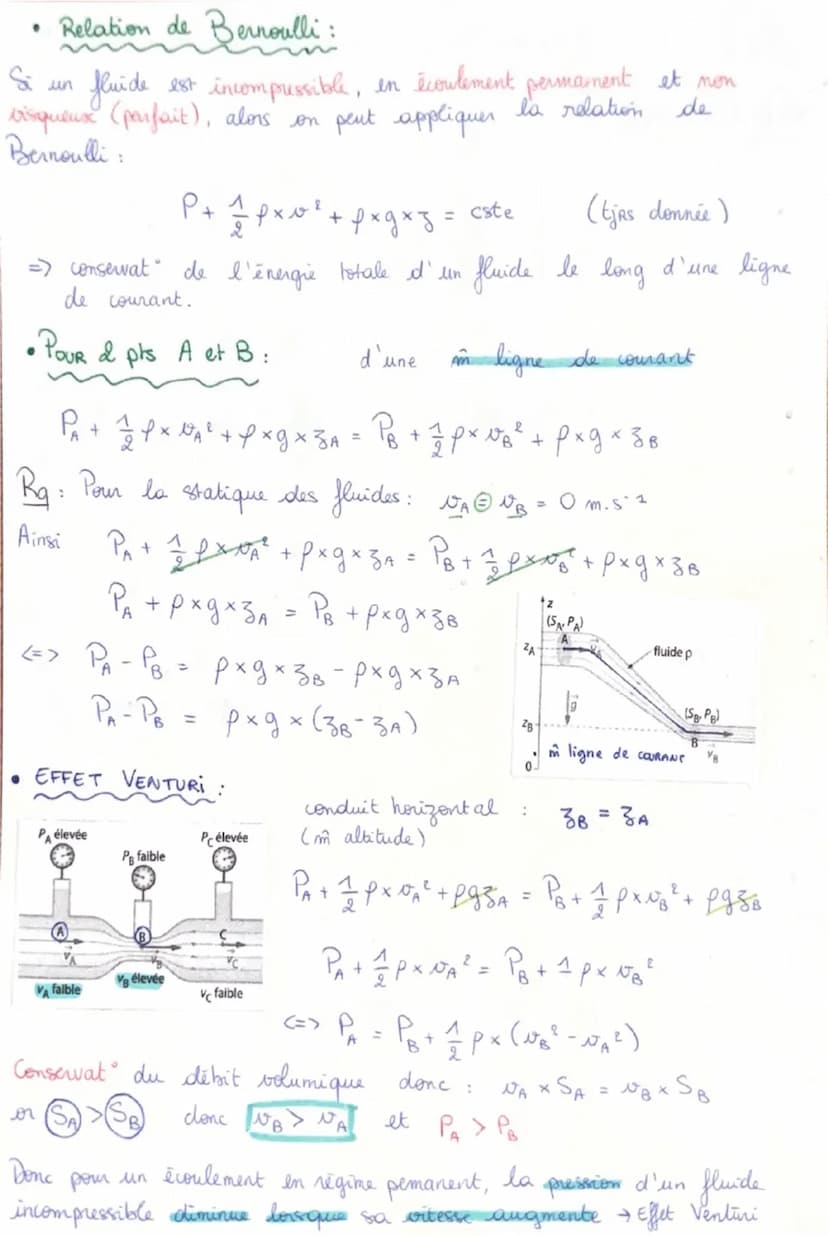 • Relation de Bernoulli :
Si un fluide est incompressible, en écoulement permanent et non
visqueux (parfait), alors on peut appliquer la relation de
Bernoulli :
P + 1/2 ρ × v² + ρ × g × z = cste (tjrs donnée)
=> conservat° de l'énergie totale d'un fluide le long d'une ligne
de courant.
• Pour 2 pts A et B : d'une m̂ ligne de courant
P_A + 1/2 ρ × v_A² + ρ × g × z_A = P_B + 1/2 ρ × v_B² + ρ × g × z_B
Rq : Pour la statique des fluides : v_A = v_B = 0 m.s⁻¹
Ainsi P_A + 1/2 ρ × v_A² + ρ × g × z_A = P_B + 1/2 ρ × v_B² + ρ × g × z_B
P_A + ρ × g × z_A = P_B + ρ × g × z_B
<=> P_A - P_B = ρ × g × z_B - ρ × g × z_A
P_A - P_B = ρ × g × (z_B - z_A)
z
(S_A, P_A)
z_A
A
v_A
fluide ρ
g
(S_B, P_B)
z_B
B
v_B
0
m̂ ligne de courant
• EFFET VENTURI :
conduit horizontal : z_B = z_A
(m̂ altitude)
P_A élevée
P_B faible
P_C élevée
A
B
C
v_A
v_B
v_C
v_A faible
v_B élevée
v_C faible
P_A + 1/2 ρ × v_A² + ρgz_A = P_B + 1/2 ρ × v_B² + ρgz_B
P_A + 1/2 ρ × v_A² = P_B + 1 ρ × v_B²
<=> P_A = P_B + 1/2 ρ × (v_B² - v_A²)
Conservat° du débit volumique donc : v_A × S_A = v_B × S_B
or S_A > S_B donc v_B > v_A et P_A > P_B
Donc pour un écoulement en régime pemanent, la pression d'un fluide
incompressible diminue lorsque sa vitesse augmente → Effet Venturi